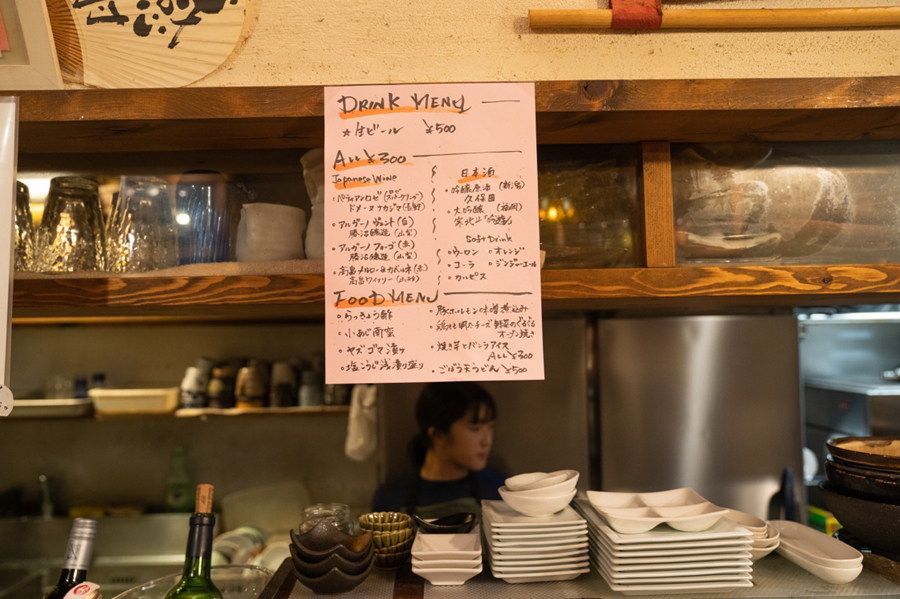 DRINK MENU
☆生ビール ¥500
ALL ¥300
Japanese Wine
ドメーヌナカジマ(長野)
・アルガーノ ヴェント(白)
勝沼醸造(山梨)
・アルガーノ フォーゴ(赤)
勝沼醸造(山梨)
・高畠メルロー&カベルネ(赤)
高畠ワイナリー(山形)
日本酒
・吟醸原酒(新潟)
久保田
・大吟醸(福岡)
寒北斗
Soft Drink
・ウーロン ・オレンジ
・コーラ ・ジンジャーエール
・カルピス
FOOD MENU
・らっきょう酢
・小あじ南蛮
・ヤズゴマ漬け
・塩こうじ浅漬け盛り
・豚ホルモン味噌煮込み
・鶏もも明太チーズ 野菜のぐるぐる
オーブン焼き
・焼き芋とバニラアイス
ALL ¥300
・ごぼう天うどん ¥500